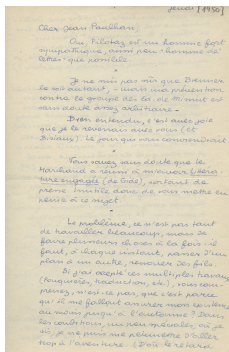 jeudi [1950]
Cher Jean Paulhan,
Oui, Pilotaz est un homme fort
sympathique, aussi peu "homme de
lettres" que possible.
Je ne suis pas sûr que Bremer
le soit autant, — mais ma prévention
contre le groupe des Ed. de Minuit est
sans doute assez arbitraire.
Bien entendu, c'est avec joie
que je le reverrais avec vous (et
). Le jour qui vous conviendrait
Vous savez sans doute que le
a réussi à
(de ), sortant de
presse. Inutile donc de vous mettre en
peine à ce sujet
Le problème, ce n'est pas tant
de travailler beaucoup, mais de
faire plusieurs choses à la fois : il
faut, à chaque instant, passer d'un
plan à un autre, renouer des fils
Si j'ai accepté ces multiples travaux
( , traduction, etc.), vous com-
prenez, n'est-ce pas, que c'est parce
qu'il me fallait assurer mon
au moins jusqu'à l'automne ? Dans
les conditions, un peu pénibles, où je
suis, je ne puis me permettre d'aller
trop à l'aventure. D'où le retard